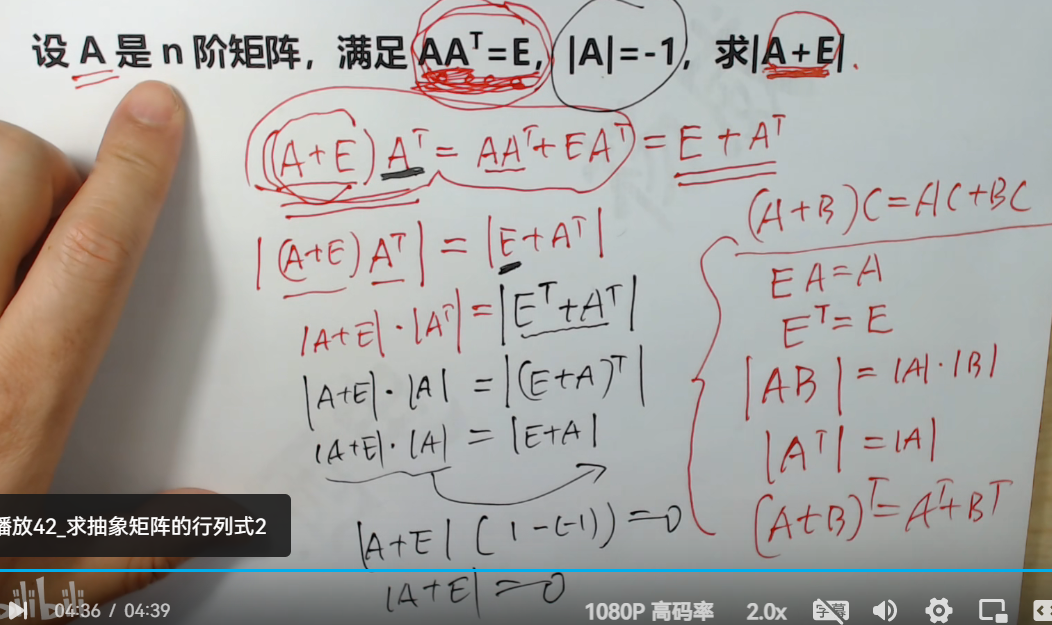 设 A 是 n 阶矩阵，满足 AAᵀ=E，|A|=-1，求|A+E|.
(A+E)Aᵀ = AAᵀ+EAᵀ = E+Aᵀ
|(A+E)Aᵀ| = |E+Aᵀ|
|A+E|·|Aᵀ| = |Eᵀ+Aᵀ|
|A+E|·|A| = |(E+A)ᵀ|
|A+E|·|A| = |E+A|
|A+E|(1-(-1))=0
|A+E|=0
(A+B)C=AC+BC
EA=A
Eᵀ=E
|AB|=|A|·|B|
|Aᵀ|=|A|
(A+B)ᵀ=Aᵀ+Bᵀ
播放42_求抽象矩阵的行列式2
bilibili
04:36 / 04:39
1080P 高码率
2.0x
字幕